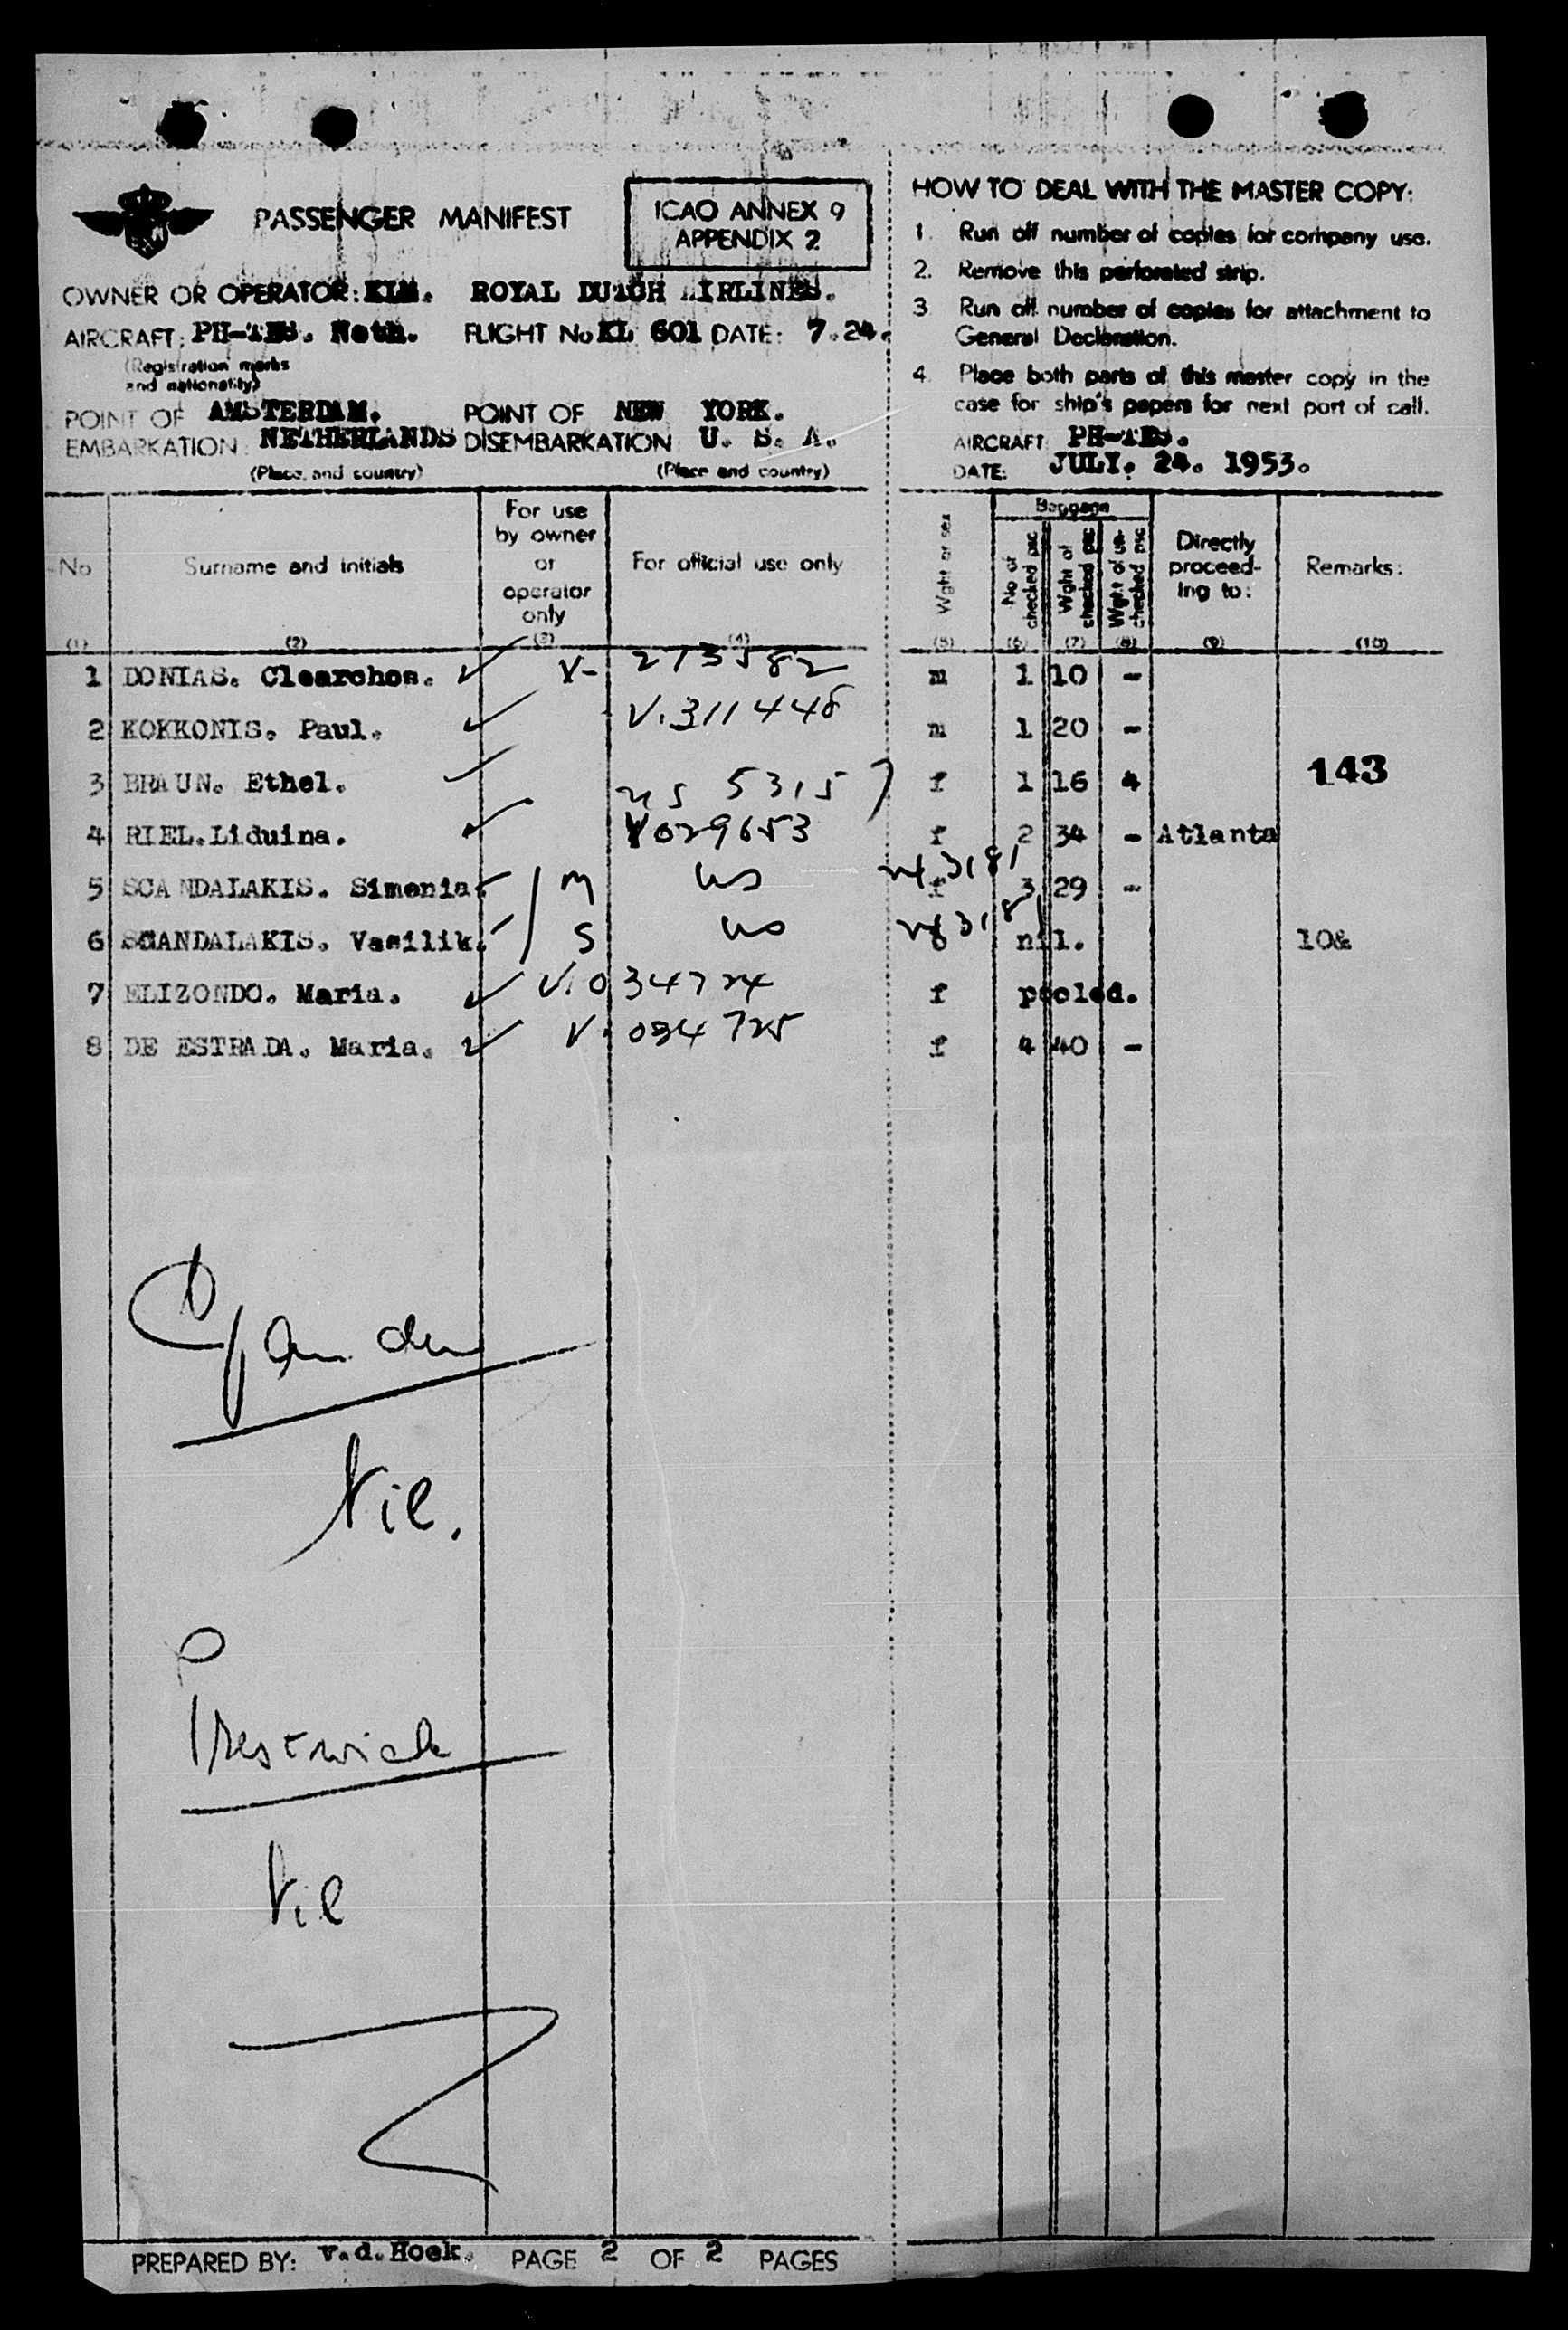 PASSENGER MANIFEST
ICAO ANNEX 9
APPENDIX 2
OWNER OR OPERATOR: KLM. ROYAL DUTCH AIRLINES.
AIRCRAFT: Neth. FLIGHT No KL 601 DATE: 7.24.
(Registration marks
and nationality)
POINT OF EMBARKATION: AMSTERDAM. NETHERLANDS
(Place and country)
POINT OF DISEMBARKATION NEW YORK. U. S. A.
(Place and country)
HOW TO DEAL WITH THE MASTER COPY:
1. Run off number of copies for company use.
2. Remove this perforated strip.
3 Run off number of copies for attachment to
General Declaration.
4. Place both parts of this master copy in the
case for ship's papers for next port of call.
AIRCRAFT:
DATE: JULY. 24. 1953.
No (1)
Surname and initials (2)
For use by owner or operator only (3)
For official use only (4)
Wght or sex (5)
Baggage
No of checked psc (6)
Wght of checked psc (7)
Wght of un-checked psc (8)
Directly proceed-ing to: (9)
Remarks: (10)
1 DONIAS. Clearchos. V- 213582 m 1 10 -
2 KOKKONIS. Paul. V.311448 m 1 20 -
3 BRAUN. Ethel. us 53157 f 1 16 4 143
4 RIEL. Liduina. V029653 f 2 34 - Atlanta
5 SCANDALAKIS. Simenia. m us 3181 f 3 29 -
6 SCANDALAKIS. Vasilik. S us nil. 10&
7 ELIZONDO. Maria. V.034724 f pooled.
8 DE ESTRADA. Maria. V.034725 f 4 40 -
Gander
Nil.
Prestwick
Nil
PREPARED BY: v.d.Hoek. PAGE 2 OF 2 PAGES